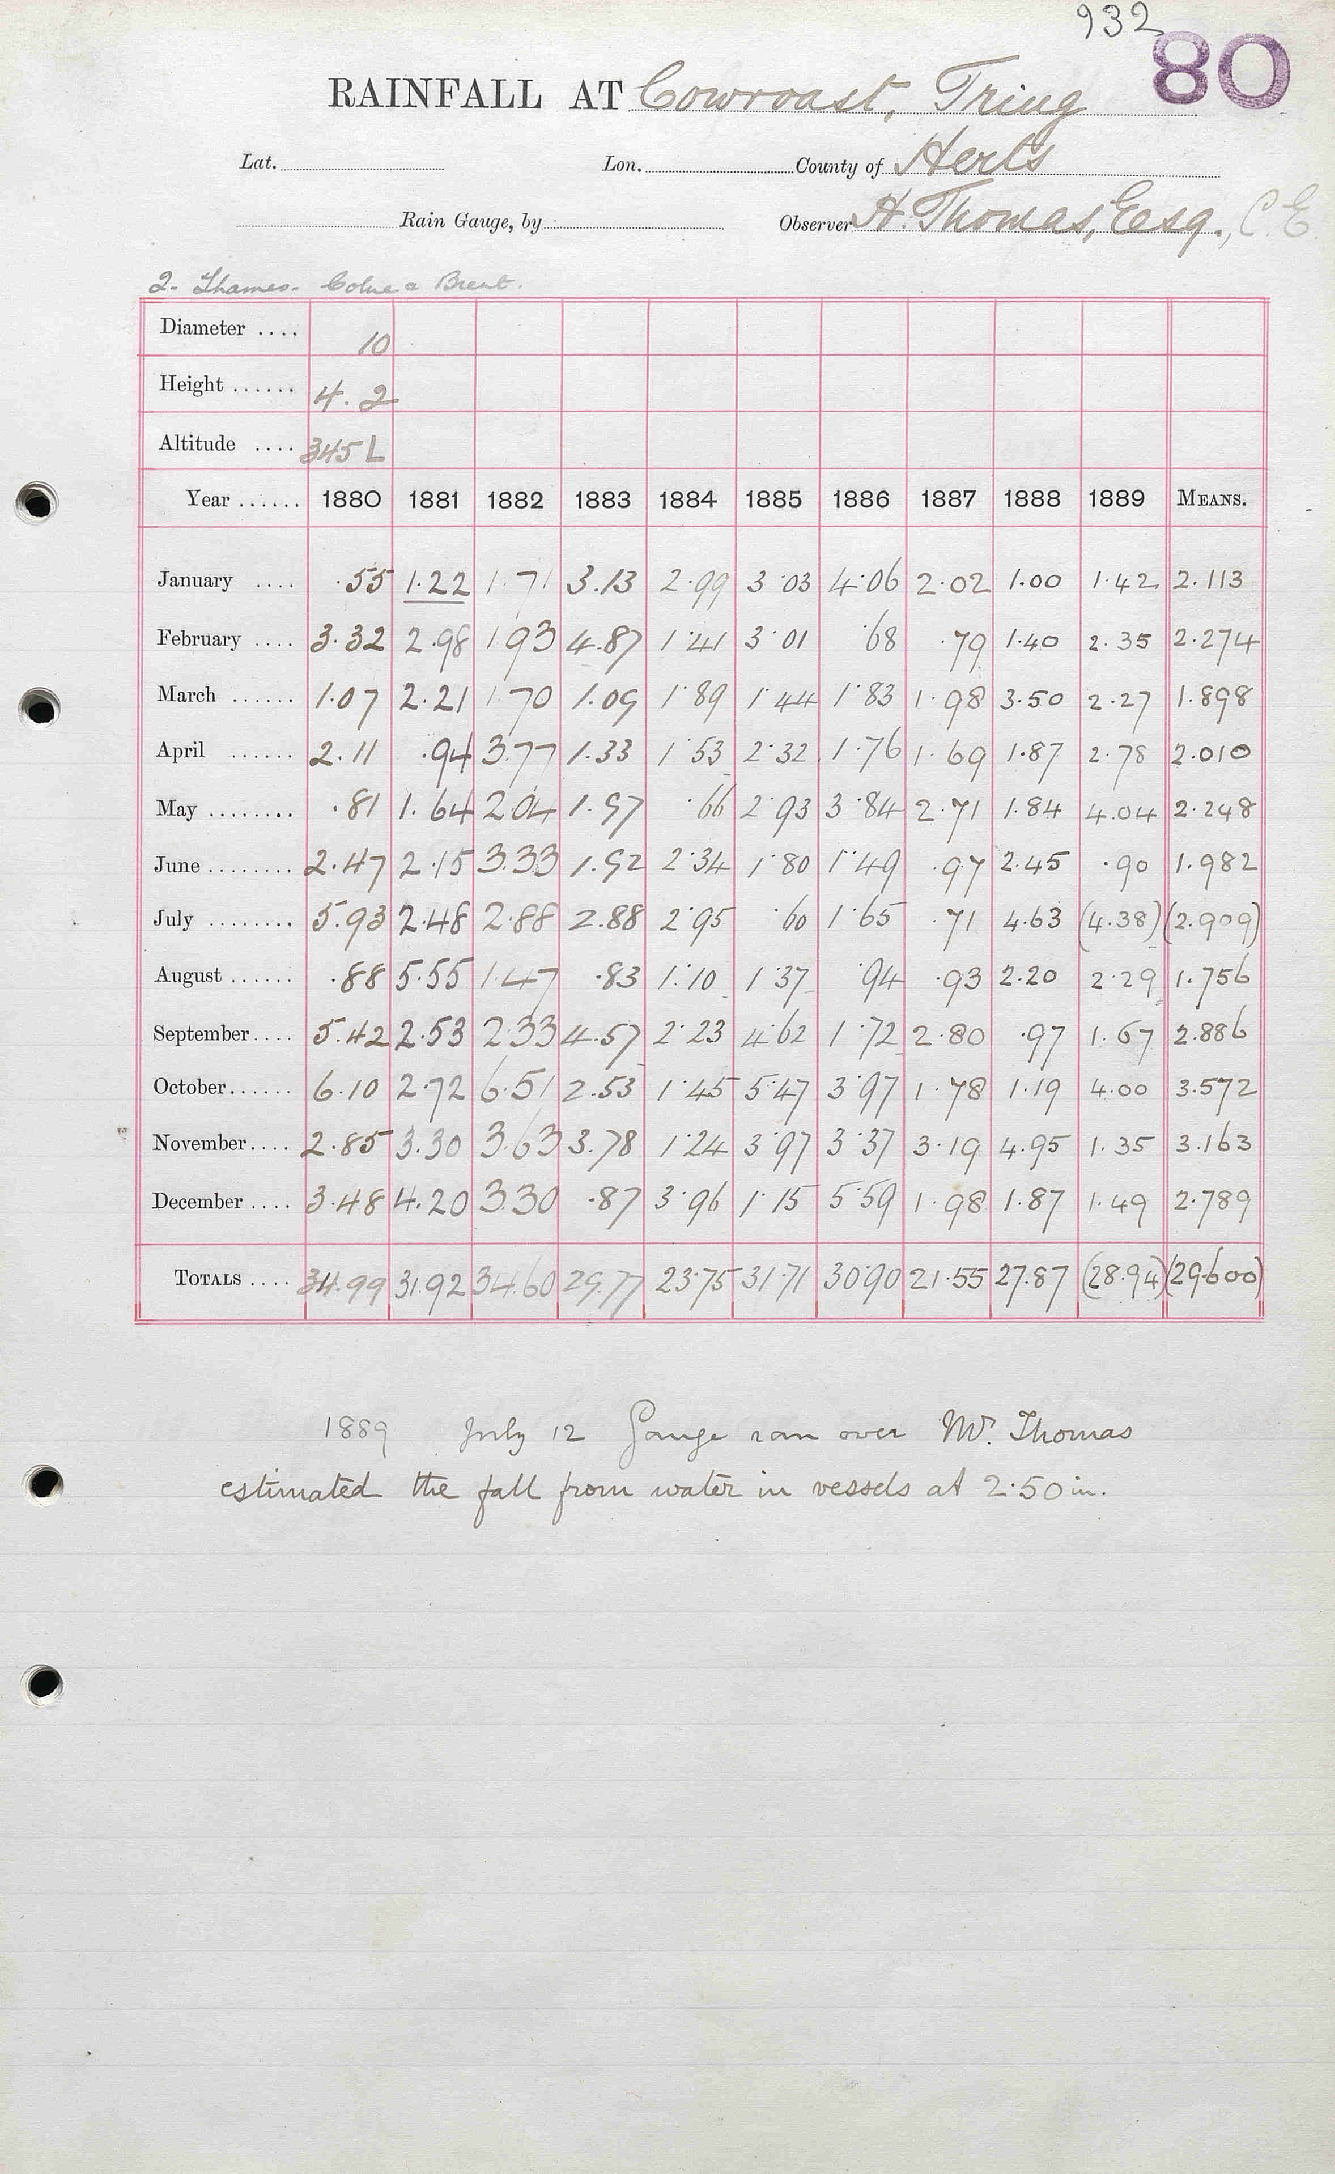 932
80
RAINFALL AT Cowroast, Tring
Lat. Lon. County of Herts
Rain Gauge, by Observer H. Thomas, Esq., C.E.
2. Thames. Colne & Brent.
Diameter .... 10
Height ...... 4.2
Altitude .... 345 L
Year ...... 1880 1881 1882 1883 1884 1885 1886 1887 1888 1889 MEANS.
January .... .55 1.22 1.71 3.13 2.99 3.03 4.06 2.02 1.00 1.42 2.113
February .... 3.32 2.98 1.93 4.87 1.41 3.01 .68 .79 1.40 2.35 2.274
March ...... 1.07 2.21 1.70 1.09 1.89 1.44 1.83 1.98 3.50 2.27 1.898
April ...... 2.11 .94 3.77 1.33 1.53 2.32 1.76 1.69 1.87 2.78 2.010
May ........ .81 1.64 2.04 1.97 .66 2.93 3.84 2.71 1.84 4.04 2.248
June ........ 2.47 2.15 3.33 1.92 2.34 1.80 1.49 .97 2.45 .90 1.982
July ........ 5.93 2.48 2.88 2.88 2.95 .60 1.65 .71 4.63 (4.38) (2.909)
August ...... .88 5.55 1.47 .83 1.10 1.37 .94 .93 2.20 2.29 1.756
September .... 5.42 2.53 2.33 4.57 2.23 4.62 1.72 2.80 .97 1.67 2.886
October ...... 6.10 2.72 6.51 2.53 1.45 5.47 3.97 1.78 1.19 4.00 3.572
November .... 2.85 3.30 3.63 3.78 1.24 3.97 3.37 3.19 4.95 1.35 3.163
December .... 3.48 4.20 3.30 .87 3.96 1.15 5.59 1.98 1.87 1.49 2.789
TOTALS .... 34.99 31.92 34.60 29.77 23.75 31.71 30.90 21.55 27.87 (28.94) (29.600)
1889 July 12 Gauge ran over Mr. Thomas
estimated the fall from water in vessels at 2.50 in.